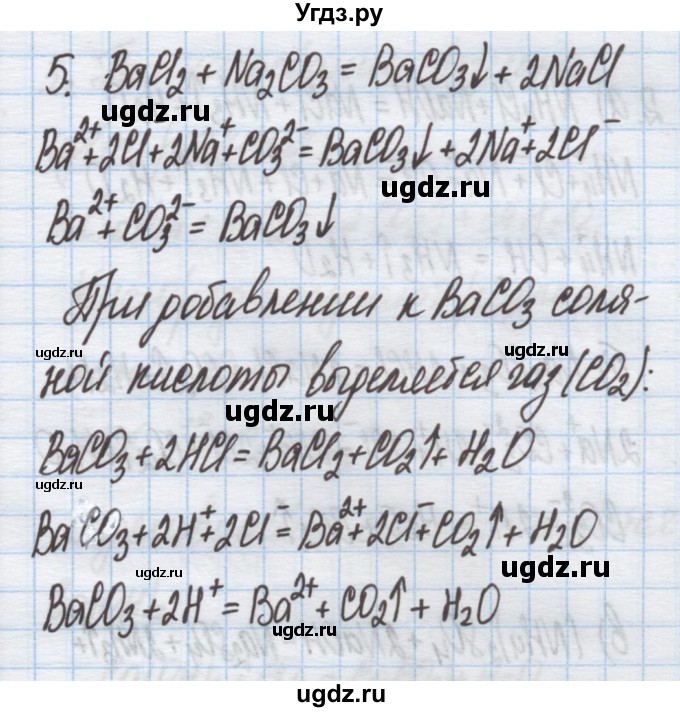 Угдз.ру
5. BaCl₂ + Na₂CO₃ = BaCO₃↓ + 2NaCl
ugdz.ru
Ba²⁺ + 2Cl + 2Na⁺ + CO₃²⁻ = BaCO₃↓ + 2Na⁺ + 2Cl⁻
ugdz.ru
Ba²⁺ + CO₃²⁻ = BaCO₃↓
При добавлении к BaCO₃ соля-
ugdz.ru ugdz.ru
ной кислоты выделяется газ (CO₂):
ugdz.ru
BaCO₃ + 2HCl = BaCl₂ + CO₂↑ + H₂O
ugdz.ru ugdz.ru
BaCO₃ + 2H⁺ + 2Cl⁻ = Ba²⁺ + 2Cl⁻ + CO₂↑ + H₂O
ugdz.ru ugdz.ru
BaCO₃ + 2H⁺ = Ba²⁺ + CO₂↑ + H₂O
ugdz.ru
ugdz.ru